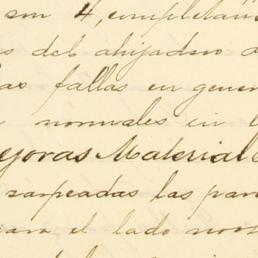 son 4, completan
s del ahijadero
las fallas en gener
normales en l
ejoras Material
zarpeadas las par
para el lado nor